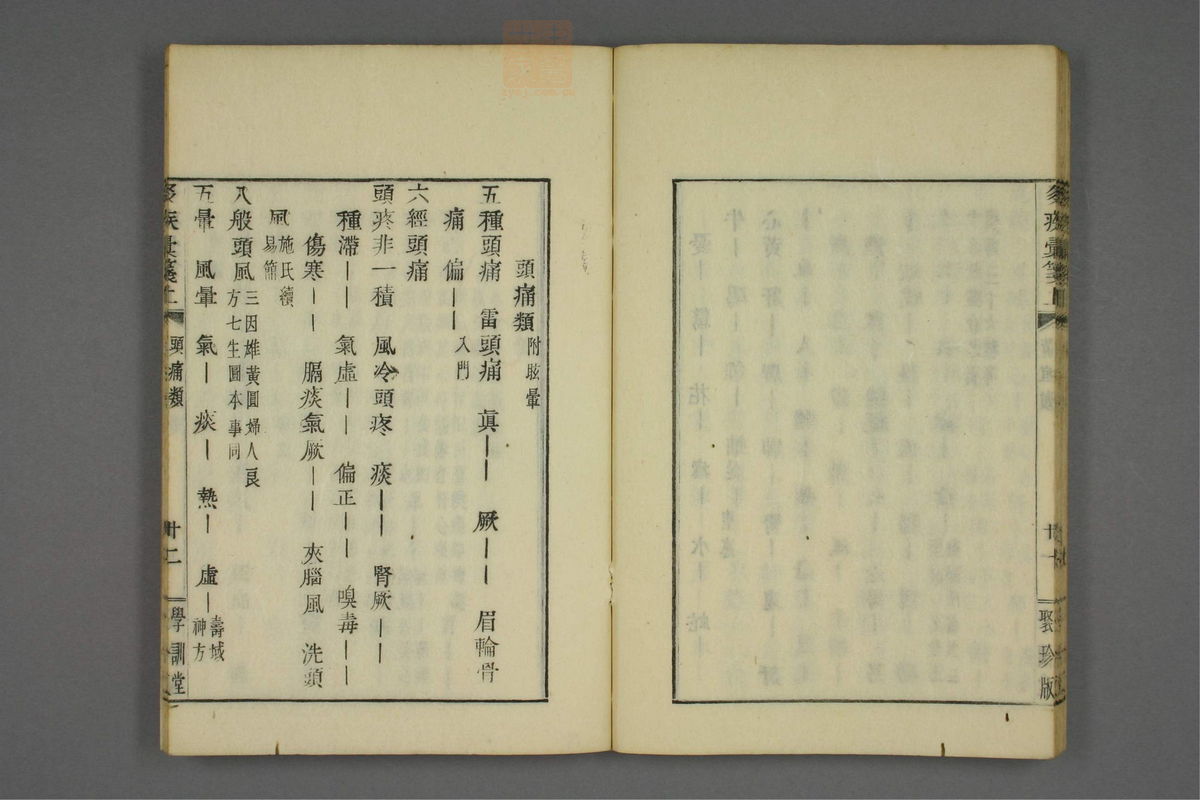 聚珍版
頭痛類附眩暈
五種頭痛 雷頭痛 眞｜｜ 厥｜｜ 眉輪骨
痛 偏｜｜入門
六經頭痛
頭疼非一積 風冷頭疼 痰｜｜ 腎厥｜｜
種滯｜｜ 氣虛｜｜ 偏正｜｜ 嗅毒｜｜
傷寒｜｜ 膈痰氣厥｜｜ 夾腦風 洗頭
風施氏續易簡
八般頭風三因雄黃圓婦人良方七生圓本事同
五暈 風暈 氣｜ 痰｜ 熱｜ 虛｜壽域神方
頭痛類
廿二
學訓堂